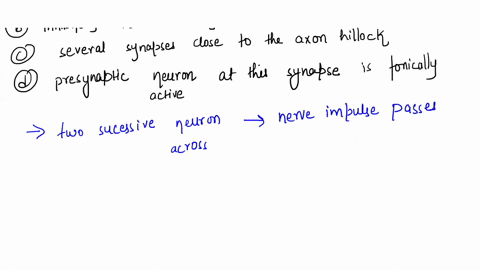 (c) several synapses close to the axon hillock
(d) presynaptic neuron at this synapse is tonically
active
→ two sucessive neuron → nerve impulse passes
across